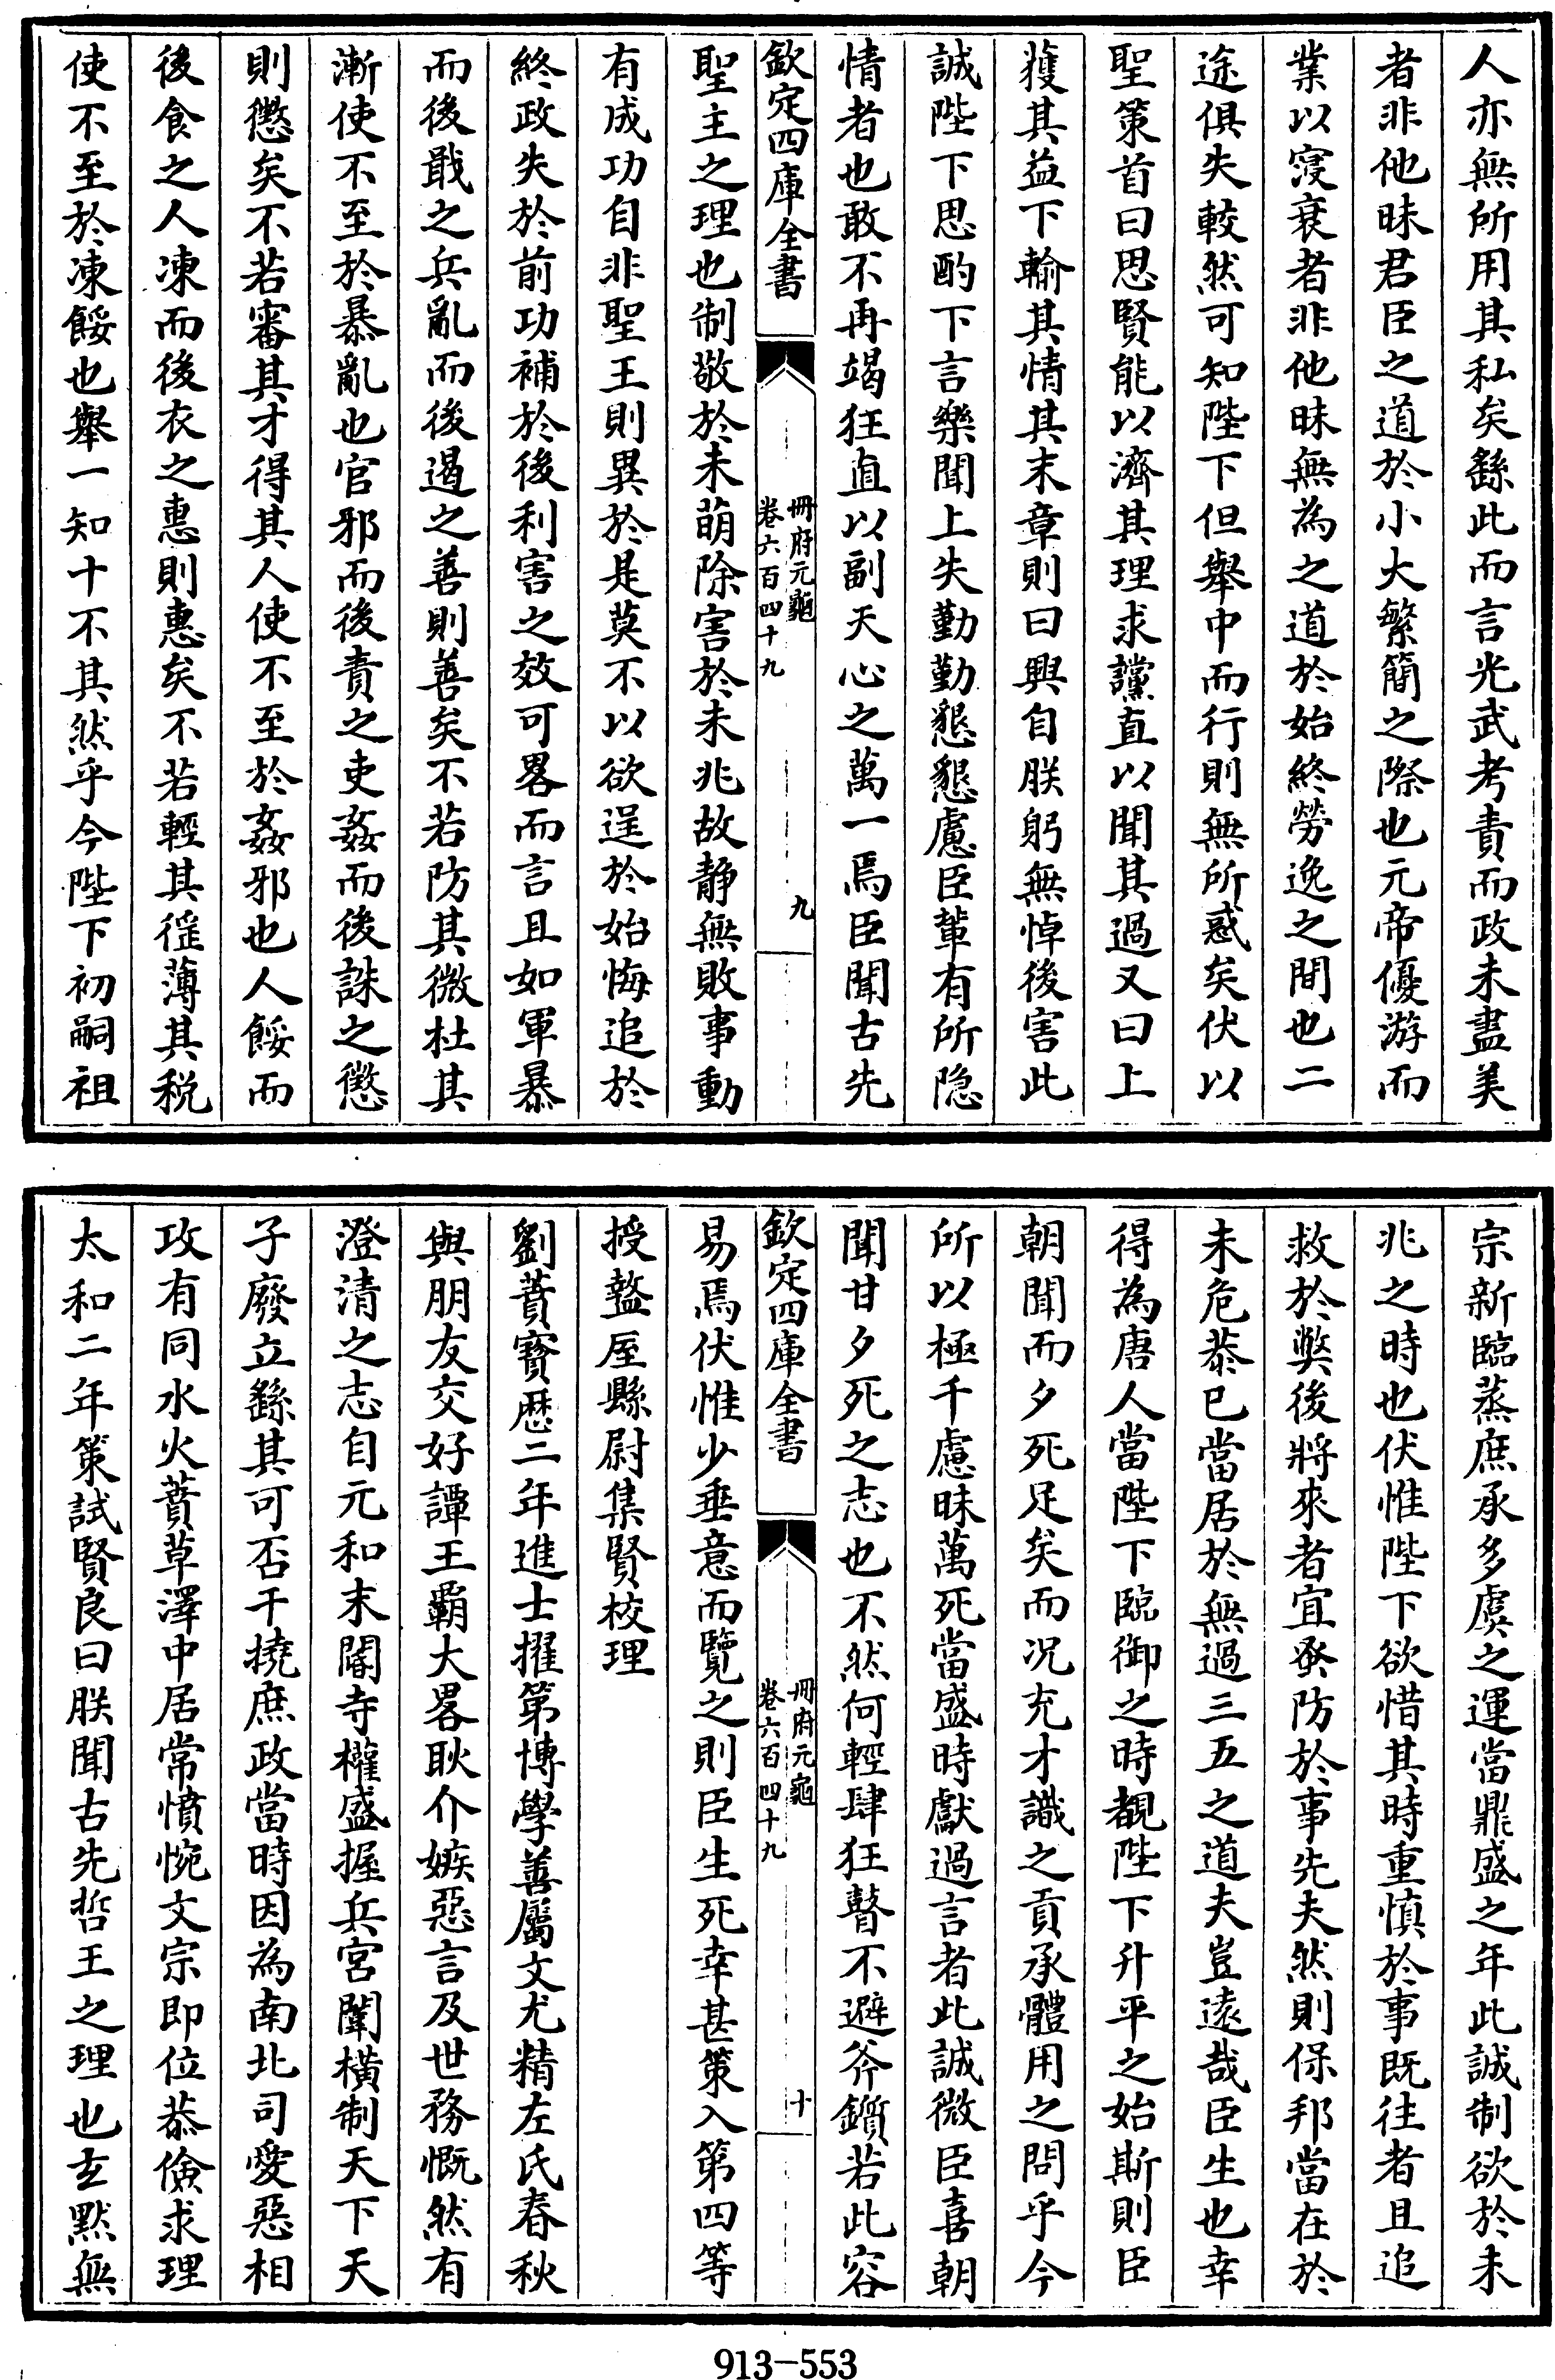 人亦無所用其私矣繇此而言光武考責而政未盡美
者非他昧君臣之道於小大繁簡之際也元帝優游而
業以寖衰者非他昧無為之道於始終勞逸之間也二
途俱失較然可知陛下但舉中而行則無所惑矣伏以
聖策首曰思賢能以濟其理求讜直以聞其過又曰上
獲其益下輸其情其末章則曰興自朕躬無悼後害此
誠陛下思酌下言樂聞上失勤勤懇懇慮臣輩有所隐
情者也敢不再竭狂直以副天心之萬一焉臣聞古先
欽定四庫全書
冊府元龜
卷六百四十九
九
聖主之理也制敬於未萌除害於未兆故静無敗事動
有成功自非聖王則異於是莫不以欲逞於始悔追於
終政失於前功補於後利害之效可畧而言且如軍暴
而後戢之兵亂而後遏之善則善矣不若防其微杜其
漸使不至於暴亂也官邪而後責之吏姦而後誅之懲
則懲矣不若審其才得其人使不至於姦邪也人餒而
後食之人凍而後衣之惠則惠矣不若輕其徭薄其税
使不至於凍餒也舉一知十不其然乎今陛下初嗣祖
宗新臨蒸庶承多虞之運當鼎盛之年此誠制欲於未
兆之時也伏惟陛下欲惜其時重慎於事既往者且追
救於弊後將來者宜蚤防於事先夫然則保邦當在於
未危恭已當居於無過三五之道夫豈遠哉臣生也幸
得為唐人當陛下臨御之時覩陛下升平之始斯則臣
朝聞而夕死足矣而况充才識之貢承體用之問乎今
所以極千慮昧萬死當盛時獻過言者此誠微臣喜朝
聞甘夕死之志也不然何輕肆狂瞽不避斧鑕若此容
欽定四庫全書
冊府元龜
卷六百四十九
十
易焉伏惟少垂意而覽之則臣生死幸甚策入第四等
授盩厔縣尉集賢校理
劉蕡寳歴二年進士擢第博學善屬文尤精左氏春秋
與朋友交好譚王霸大畧耿介嫉惡言及世務慨然有
澄清之志自元和末閽寺權盛握兵宮闈横制天下天
子廢立繇其可否干撓庶政當時因為南北司愛惡相
攻有同水火蕡草澤中居常憤惋文宗即位恭儉求理
太和二年策試賢良曰朕聞古先哲王之理也玄黙無
913-553